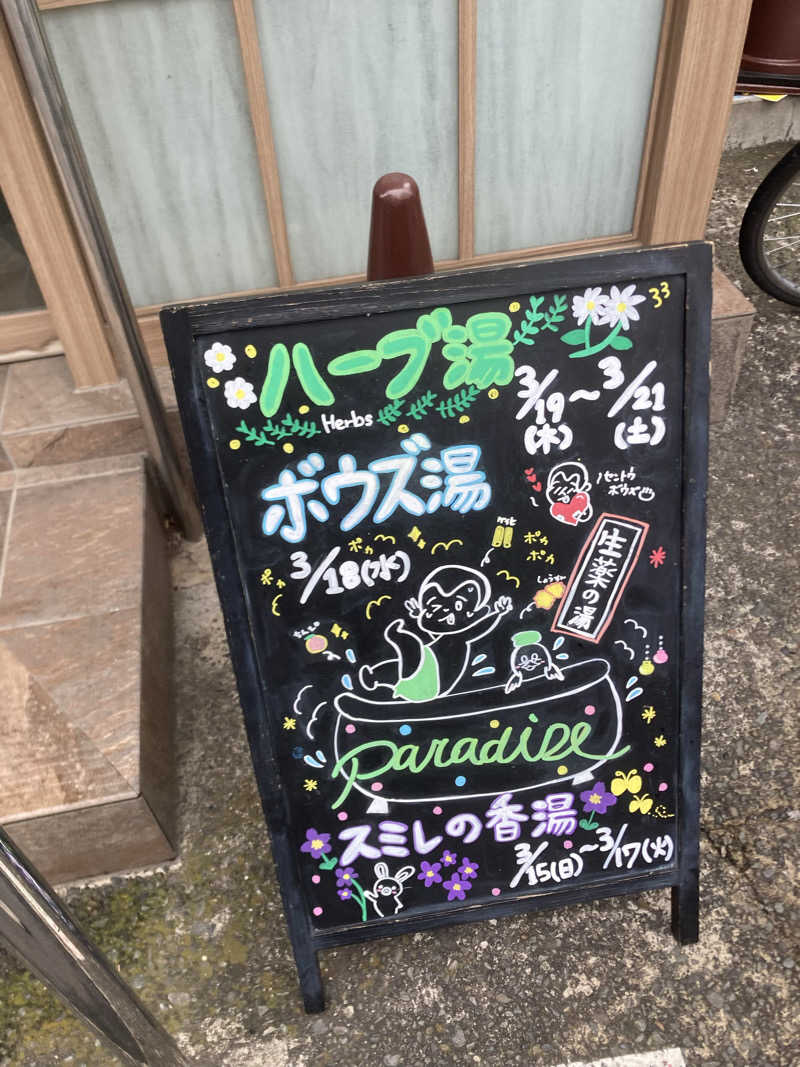 ハーブ湯
Herbs
3/19〜3/21
(木) (土)
ボウズ湯
3/18(水)
ポカ
ポカ
ポカ
しょうが
生薬の湯
Paradise
スミレの香湯
3/15(日)〜3/17(火)